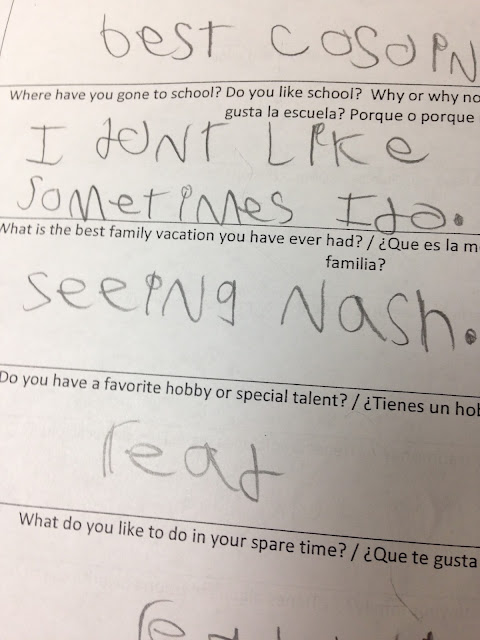 best cosoiN
Where have you gone to school? Do you like school? Why or why no
gusta la escuela? Porque o porque
I doNT LiKe
SoMetiMes I do.
What is the best family vacation you have ever had? / ¿Que es la m
familia?
seeiNg Nash.
Do you have a favorite hobby or special talent? / ¿Tienes un hob
read
What do you like to do in your spare time? / ¿Que te gusta